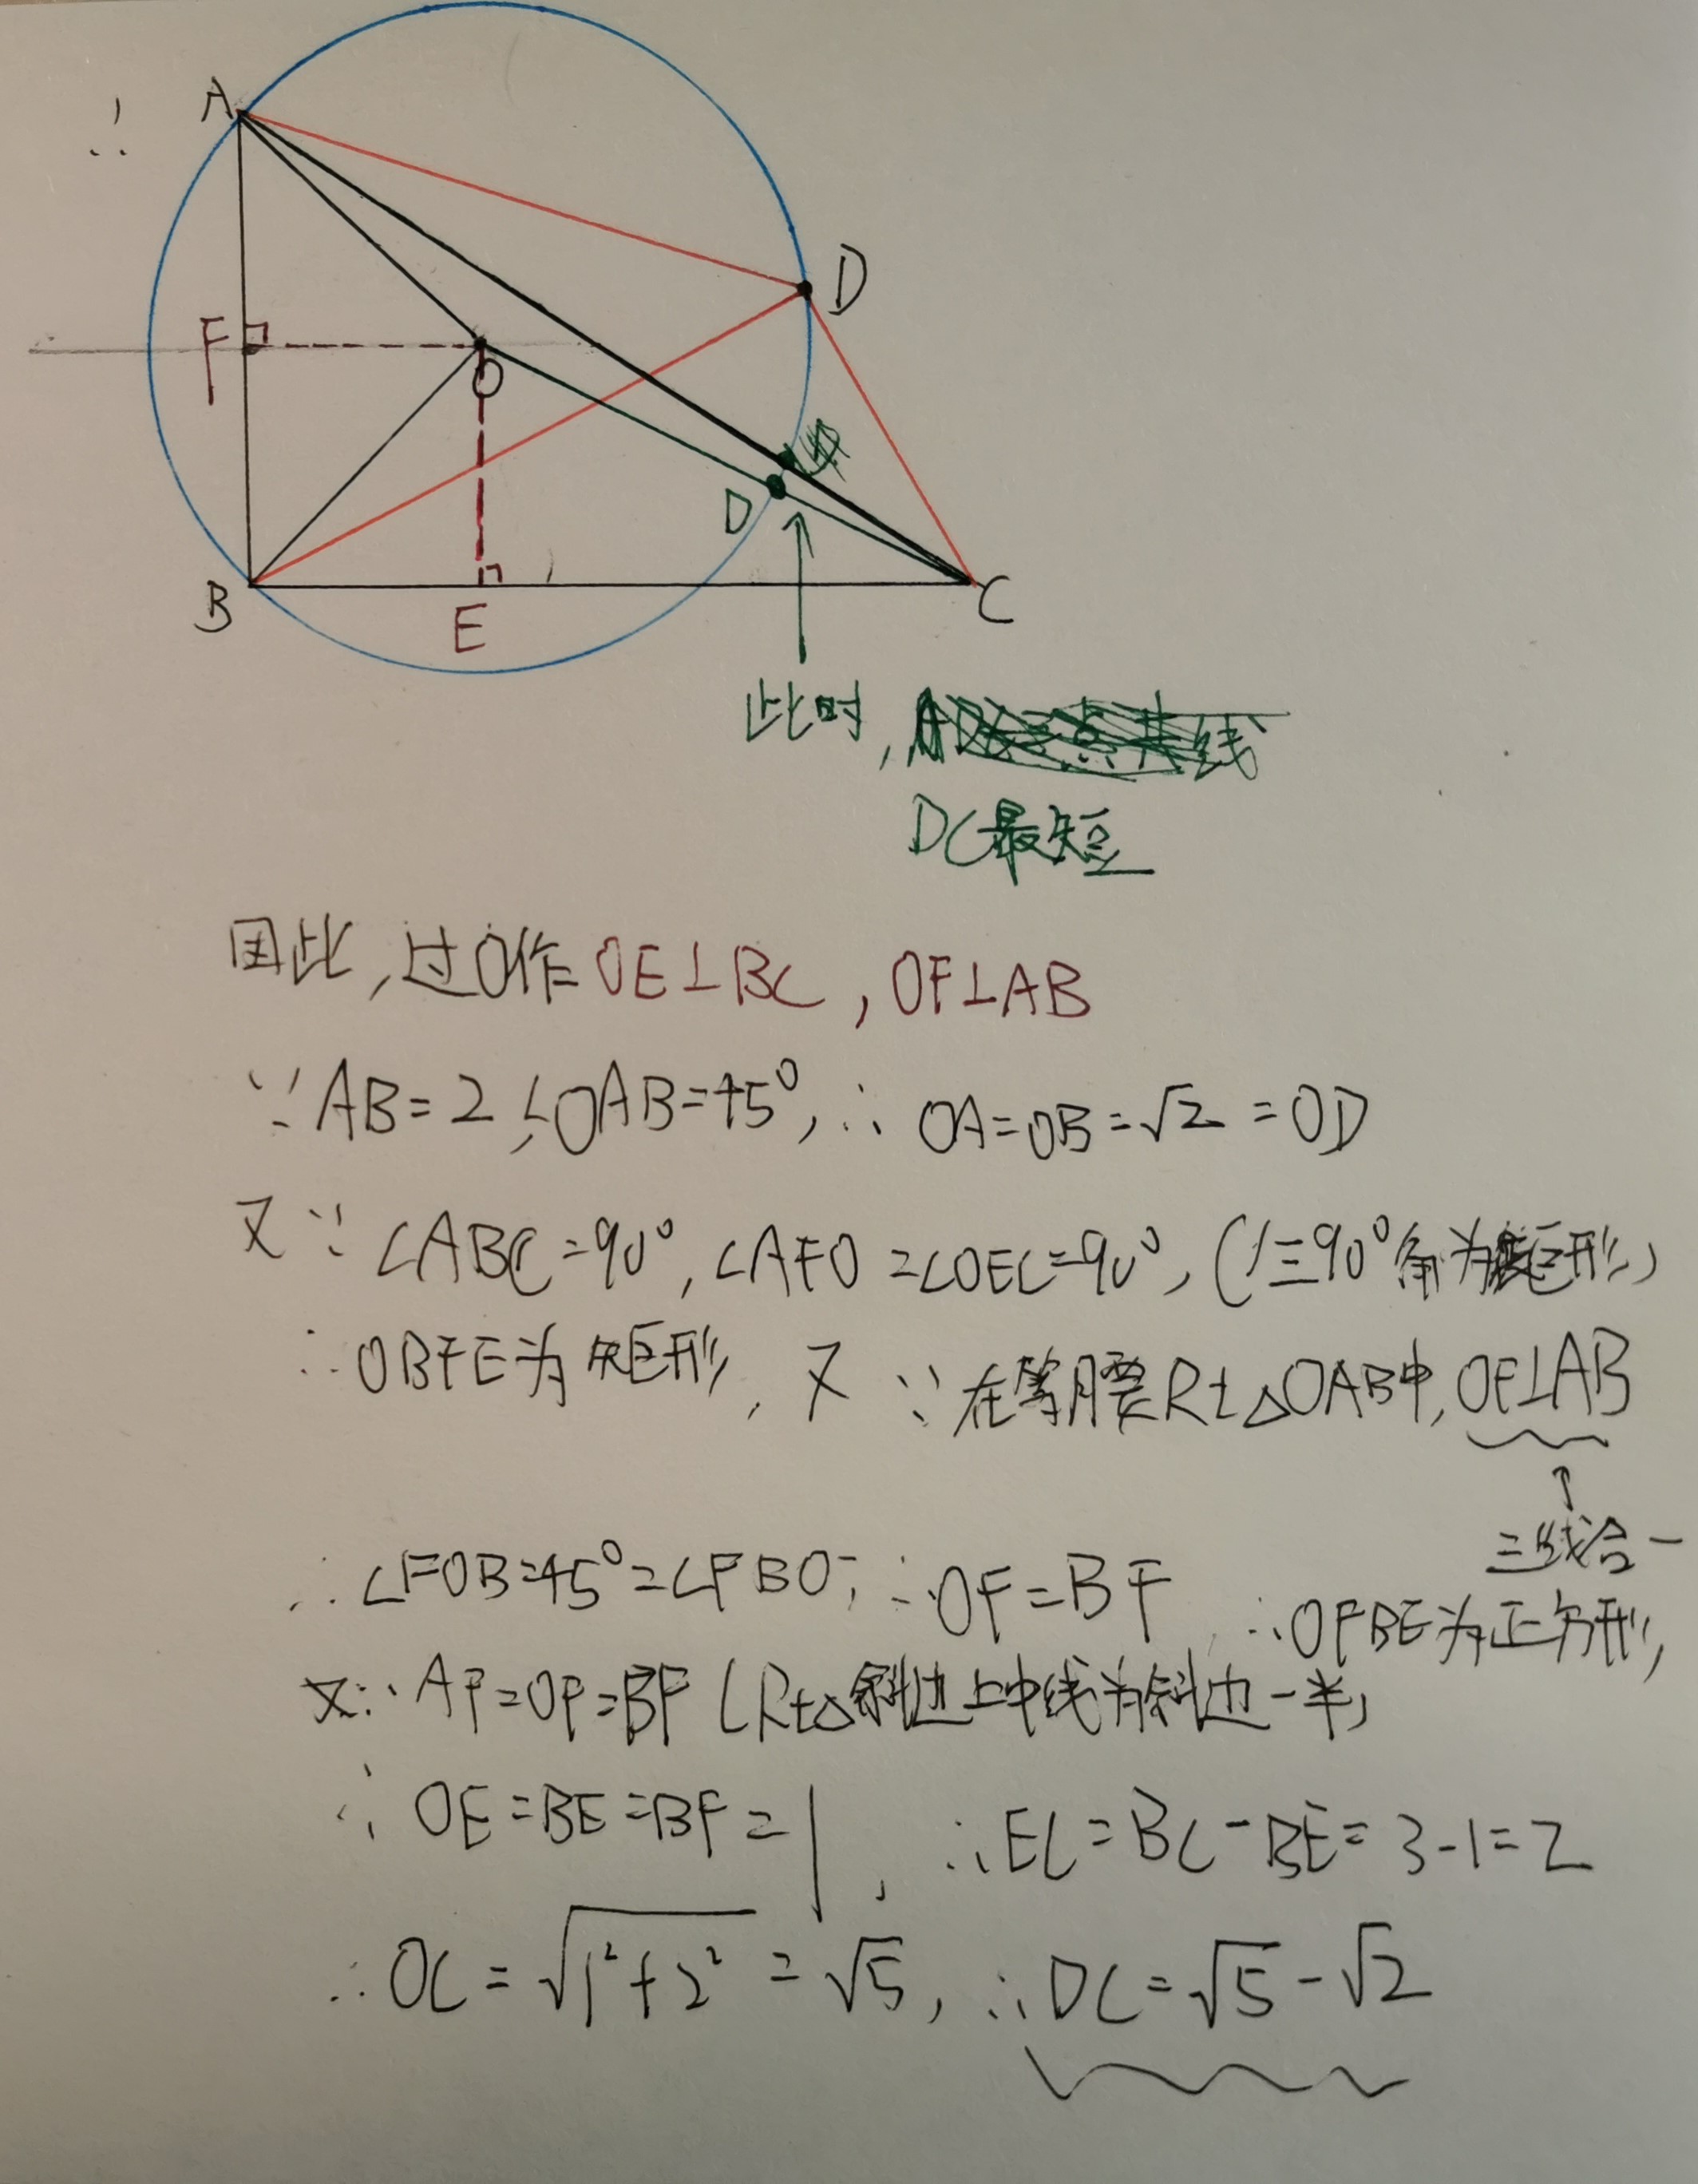 ∴
A
D
F
O
D
B
E
C
此时,
DC最短
因此,过O作OE⊥BC,OF⊥AB
∵AB=2,∠OAB=45°,∴OA=OB=√2=OD
又∵∠ABC=90°,∠AFO=∠OEC=90°,(三90°角为矩形)
∴OBFE为矩形,又∵在等腰Rt△OAB中,OF⊥AB
三线合一
∴∠FOB=45°=∠FBO,∴OF=BF ∴OFBE为正方形,
又∵AF=OF=BF(Rt△斜边上中线为斜边一半)
∴OE=BE=BF=1,∴EC=BC-BE=3-1=2
∴OC=√1²+2²=√5,∴DC=√5-√2